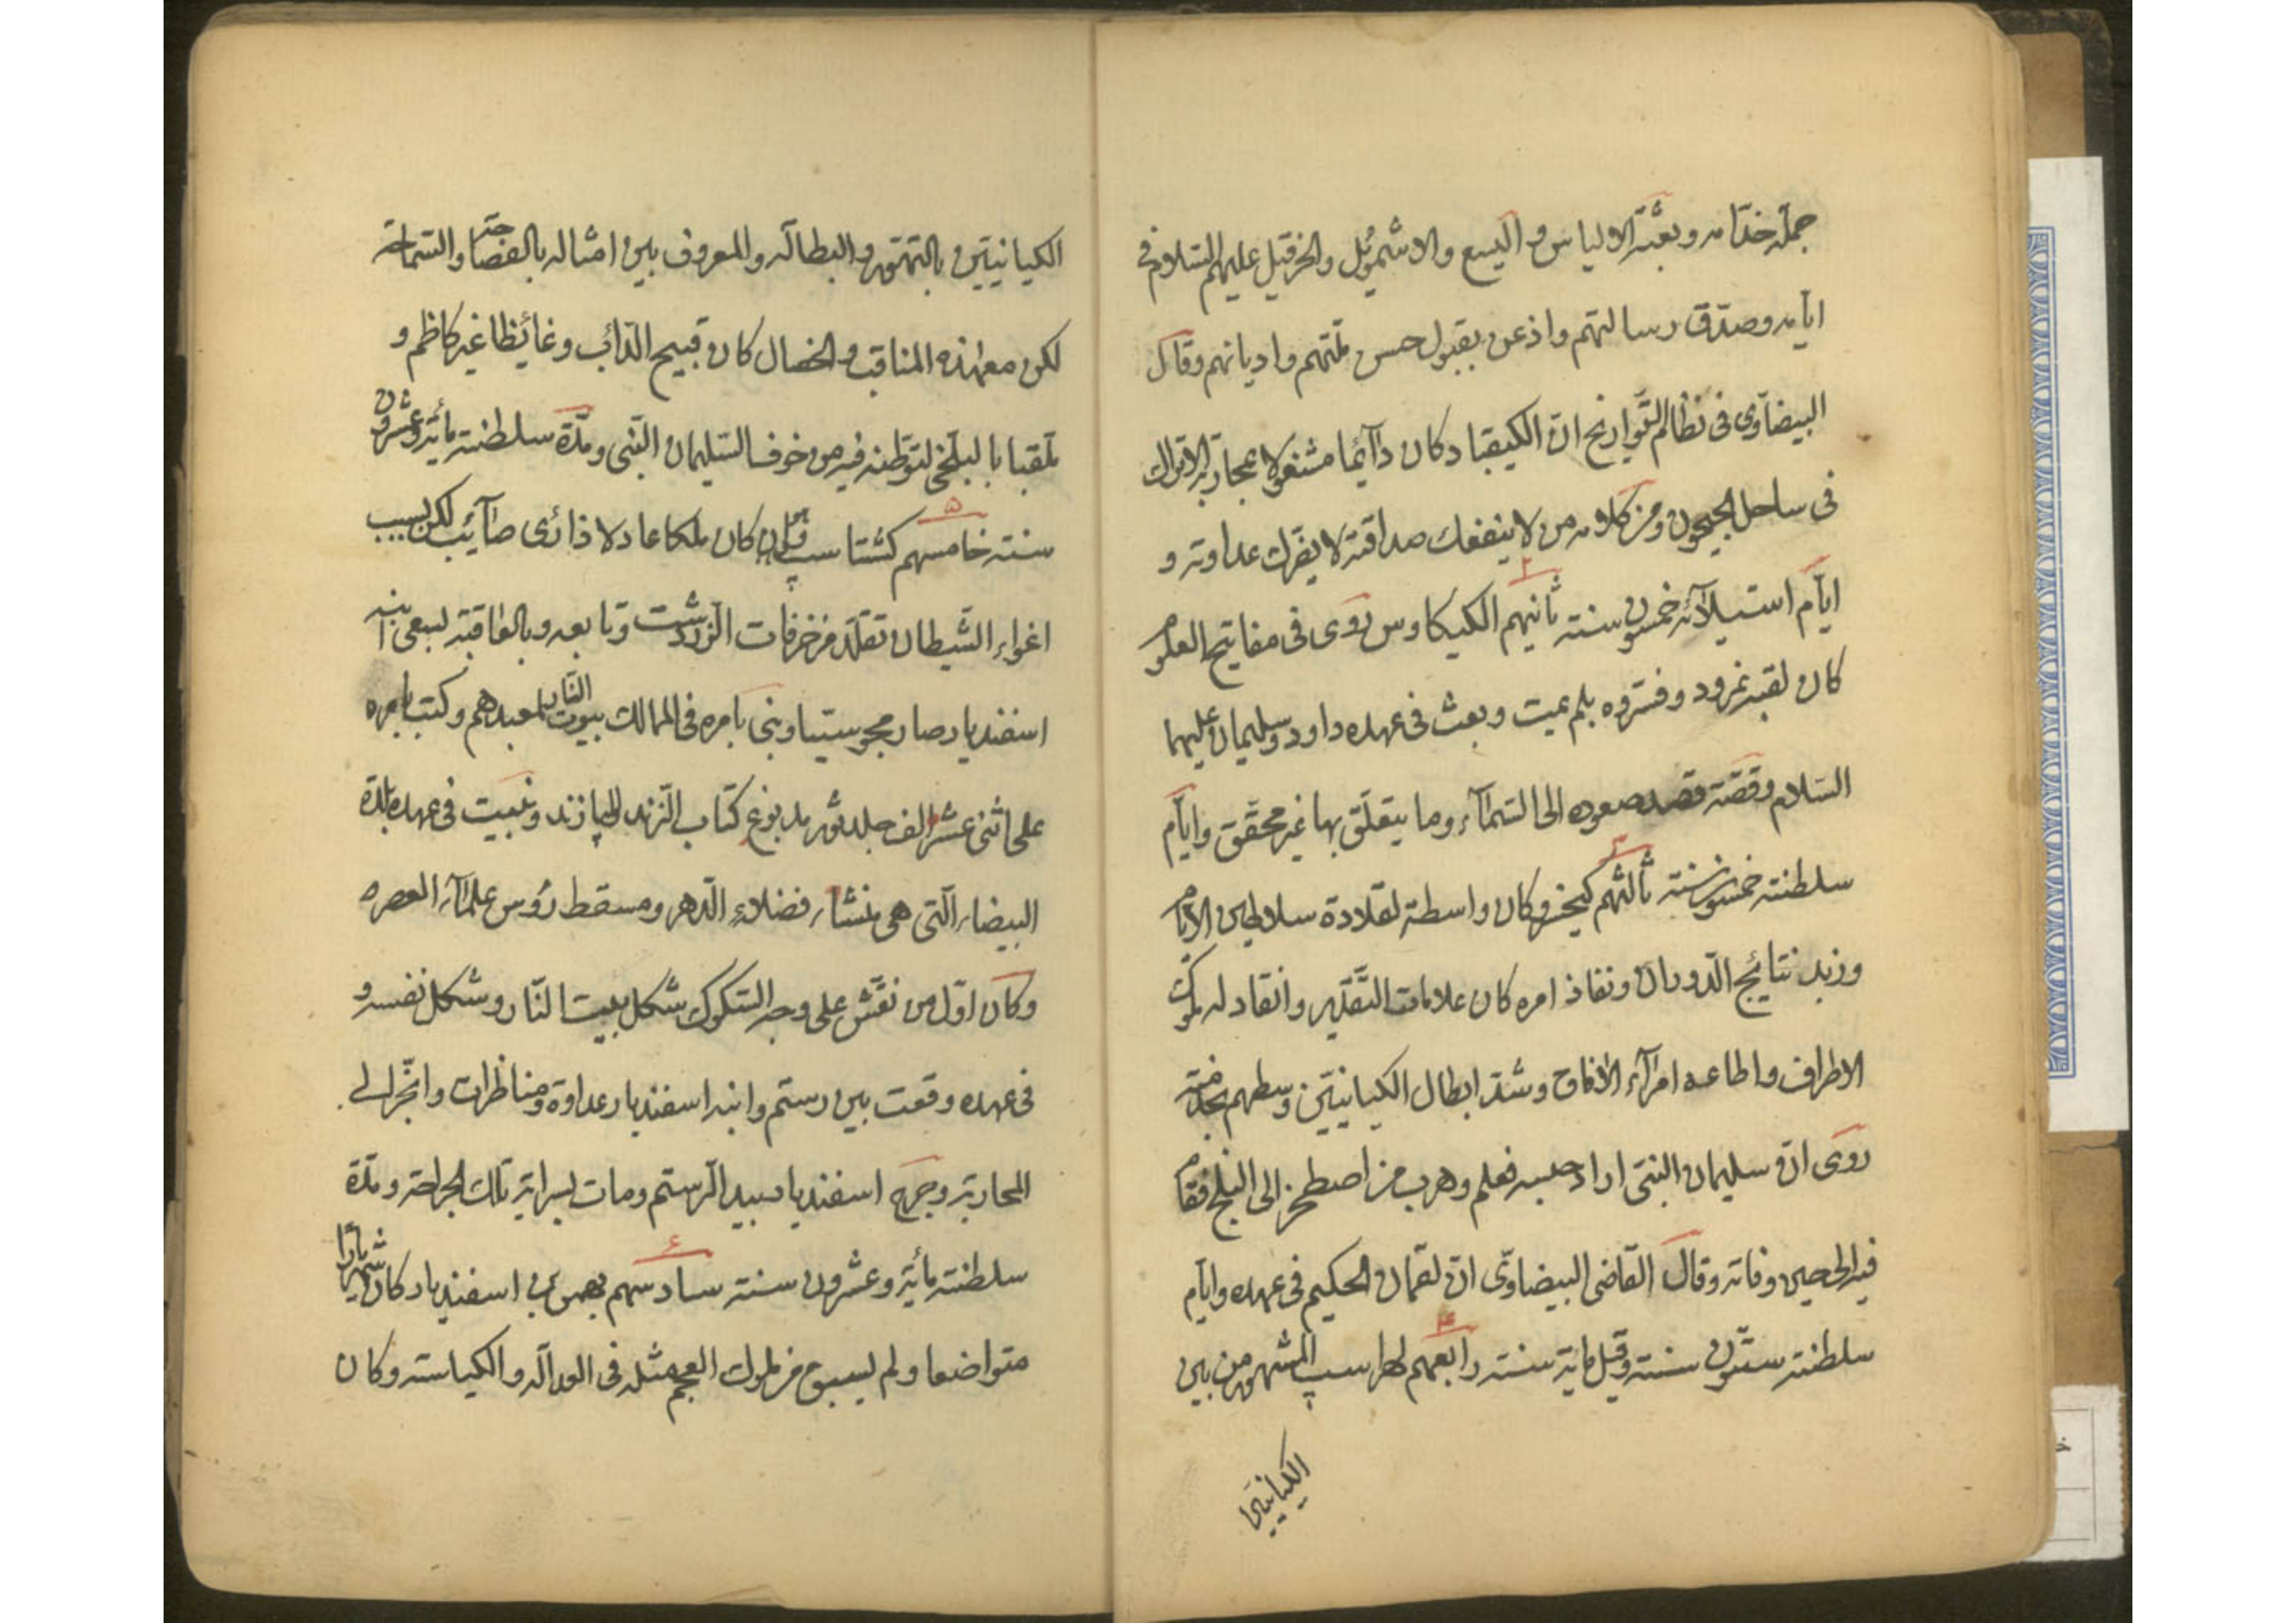 جملة خدّامه وبعثة الالياس واليسع والاشموئل والخرقيل عليهم السّلام فى
ايّامه وصدّق رسالتهم واذعن بقبول حسن ملّتهم واديانهم وقال
البيضاوى فى نظام التّواريخ انّ الكيقباد كان دآئما مشغولا بمحاربة الاتراك
فى ساحل الجيحون ومن كلامه من لا ينفعك صداقته لا يضرك عداوته و
ايّام استيلآئه خمسون سنته ۲ ثانيهم الكيكاوس روى فى مفاتيح العلوم
كان لقبه نمرود وفسّروه بلم يمت وبعث فى عهده داود وسليمان عليهما
السّلام وقصّة قصد صعوده الى السّمآء وما يتعلّق بها غير محقّق وايّام
سلطنته خمسون سنته ۳ ثالثهم كيخسرو كان واسطة لقلادة سلاطين الايّام
وزبد نتائج الدّوران ونفاذ امره كان علامات التّقدير وانقاد له ملوك
الاطراف واطاعه امرآء الافاق وشدّ ابطال الكيانيّين وسطهم بخدمته
روى انّ سليمان النبىّ اراد حبسه فعلم وهرب من اصطخر الى البلخ فقام
فيه الى حين وفاته وقال القاضى البيضاوىّ انّ لقمان الحكيم فى عهده وايّام
سلطنته ستّون سنته وقيل ماية سنته ۴ رابعهم لهراسپ المشهور من بين
الكيانيّين
الكيانيّين بالتهتّور والبطالة والمعروف بين امثاله بالفصاحة والسّماحة
لكن مع هذه المناقب والخصال كان قبيح الدّائب وغائظا غير كاظم و
ملقبا بالبلخى لتوطّنه فيه من خوف السّليمان النّبى ومدّة سلطنته مأية وعشرون
سنته ۵ خامسهم كشتاسپ كان ملكا عادلا ذا رٔى صآئب لكن بسبب
اغواء الشّيطان تقلّد مزخرفات الزردشت وتابعه وبالعاقبة لسعى ابنه
اسفنديار صار مجوسيّا وبنى بامره فى الممالك بيوت النّار لمعبدهم وكتب بامره
على اثنى عشر الف جلد ثور مدبوغ كتاب الزّند والپازند وبنيت فى عهده بلدة
البيضاء الّتى هى منشاء فضلاء الدّهر ومسقط رؤس علمآء العصره
وكان اوّل من نقّش على وجه السّكوك شكل بيت النّار وشكل نفسه و
فى عهده وقعت بين رستم وابنه اسفنديار عداوة ومناظرات وانجّر الى
المحاربة وجرح اسفنديار بيد الرستم ومات بسراية تلك الجراحة ومدّة
سلطنته مأية وعشرون سنته ۶ سادسهم بهمن بن اسفنديار كان شهريارًا
متواضعا ولم يسبق من ملوك العجم مثله فى العدالة والكياسته وكان